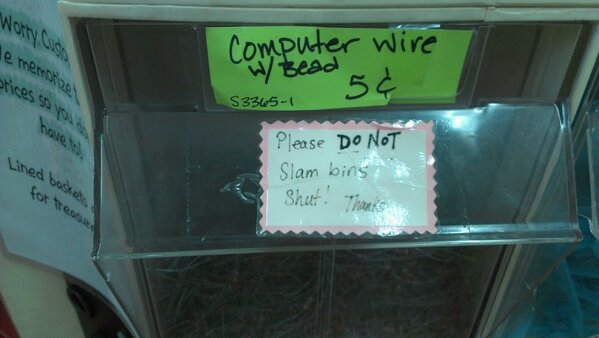 Worry Custo
e memorize
rices so you
have to!
Lined baskets
for treasure
Computer wire
w/ Bead
5¢
S3365-1
Please DO NOT
Slam bins
Shut! Thanks